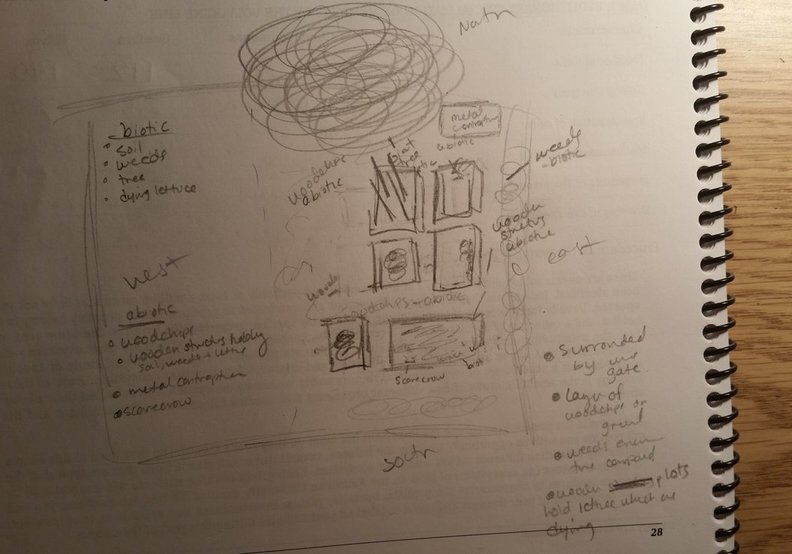 North
metal
contraption
abiotic
biotic
• soil
• weeds
• tree
• dying lettuce
weeds
- biotic
tree
biotic
woodchips
abiotic
wooden
abiotic
east
west
woodchips - abiotic
abiotic
• woodchips
• wooden holding
soil, weeds + lettuce
• metal contraption
• scarecrow
scarecrow
south
• surronded
by
gate
• layer of
woodchips on
ground
• weeds
the
• wooden plots
hold lettuce which are
dying
28